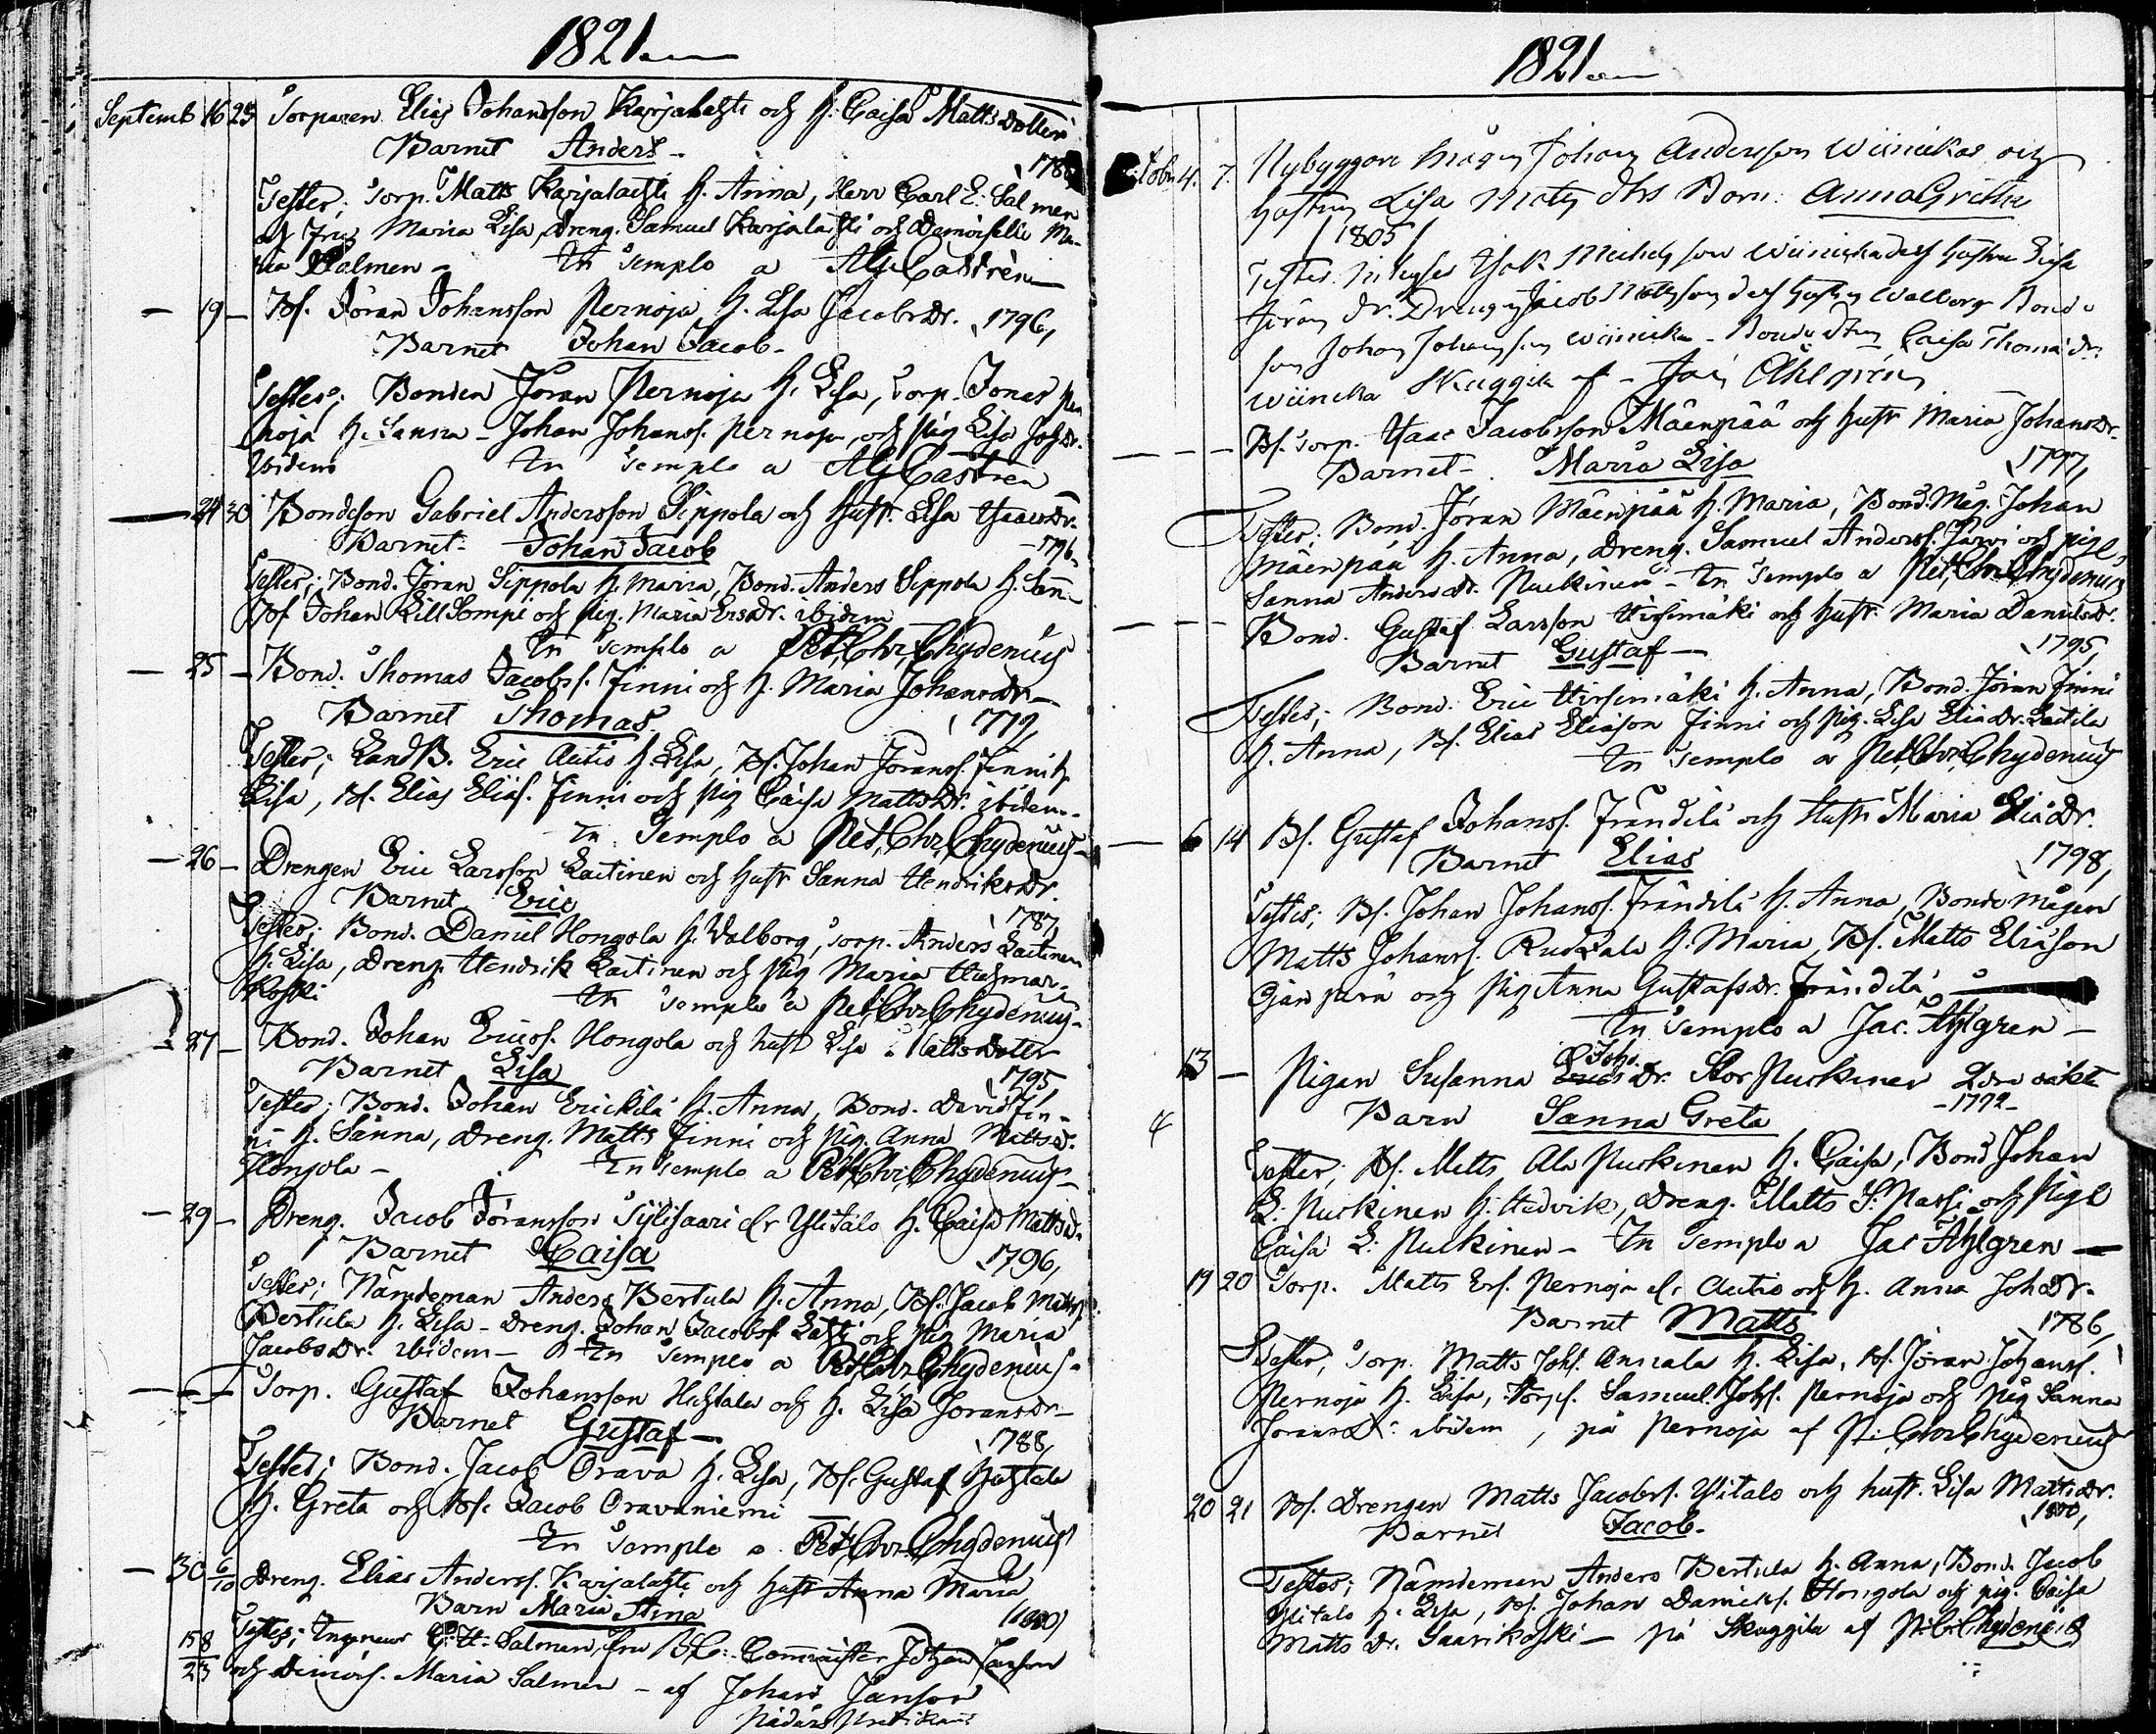 1821
Septemb 16 23 Torparen Elias Johansson Karjalahti och H. Caisa Matts dotter
Barnet Anders - 178
Testes; Torp. Matts Karjalachti H. Anna, Herr Carl E. Salmen
och Fru Maria Lisa, Dreng. Samuel Karjalahti och Demoiselle Ma-
ria Salmen - In Templo a Castrén
- 19 - Bs. Jöran Johansson Pernoja H. Lisa Jacobs Dr. 1796,
Barnet Johan Jacob -
Testes; Bonden Jöran Pernoja H. Lisa, Torp. Jonas Per
noja H. Sanna - Johan Johanss. Pernoja, och Pig Lisa Joh Dr.
Ibidem In Templo a Castrén
- 24 30 Bondeson Gabriel Andersson Sippola och Hust. Lisa Isaacs Dr.
Barnet - Johan Jacob - 1796.
Testes; Bond. Jöran Sippola H. Maria, Bond. Anders Sippola H. San-
Bs Johan Lill Sompi och Pig. Maria Ers Dr. ibidem
In Templo a Pet. Chr. Chydenius
- 25 - Bond. Thomas Jacobss. Finni och H. Maria Johans Dr -
Barnet Thomas 1779,
Testes; LandB. Eric Autio H. Lisa, Bs. Johan Joranss. Finni H.
Lisa, Bs. Elias Elias. Finni och Pig Caisa Matts Dr. ibidem -
In Templo a Pet. Chr. Chydenius -
- 26 - Drengen Eric Larsson Laitinen och Hustr Sanna Hendriks Dr.
Barnet Eric 1787,
Testes; Bond. Daniel Hongola H. Valborg, Torp. Anders Laitinen
H. Lisa, Dreng. Hendrik Laitinen och Pig Maria Huhmar-
koski In Templo a Pet. Chr. Chydenius -
- 27 - Bond. Johan Ericss. Hongola och hust Lisa Mattsdoter
Barnet Lisa 1795,
Testes; Bond. Johan Erickilä H. Anna, Bond. David Fin-
ni H. Sanna, Dreng. Matts Finni och Pig. Anna Mattsd.
Hongola - In Templo a Pet. Chr. Chydenius -
- 29 - Dreng. Jacob Joransson Sylisaari elr Ylitalo H. Caisa Matts d.
Barnet Caisa 1796,
Testes; Nämdeman Anders Bertula H. Anna, Bs. Jacob Matts s.
Bertula H. Lisa - Dreng. Johan Jacobss. Lahti och Pig Maria
Jacobs Dr. ibidem - In Templo a Pet. Chr. Chydenius.
- - - Torp. Gustaf Johansson Huhtala och H. Lisa Jorans dr -
Barnet Gustaf - 1788,
Testes; Bond. Jacob Orava H. Lisa, Bs. Gustaf Huhtala
H. Greta och Bs. Jacob Oravaniemi
In Templo a Pet. Chr. Chydenius
- 30 6/10 Dreng. Elias Anderss. Karjalahti och Hustr Anna Maria
Barn Maria Stina (1800)
Testes; Ingenieur Salmen, Fru Comminister Johan Janson
158/23 och Demois. Maria Salmen - af Johan Janson
1821
4. 7. Nybyggare Mågen Johan Andersson Wiinicka och
Hustrun Lisa Mats dtrs Barn: Anna Gretha
/1805/
Testes Isak Michelsson Wiinicka dess hustru Lisa
Jörans dr. Drengen Jacob Mattsson dess hustru Walborg Bonde
son Johan Johansson Wiinicka - Caisa Thomæ dr.
Wiinicka Skuggila af - Jac. Ahlgrén
- - - Bs. Torp. Isaac Jacobsson Mäenpää och Hustr Maria Johans Dr.
Barnet - Maria Lisa 1797,
Testes; Bond. Jöran Mäenpää H. Maria, Bond. Måg. Johan
Mäenpää H. Anna, Dreng. Samuel Anderss. Järvi och pig
Sanna Anders dr. Puckinen - In Templo a Pet. Chr. Chydenius
- - - Bond. Gustaf Larsson Hirsimäki och Hustr. Maria Daniels dr.
Barnet Gustaf - 1795,
Testes; Bond. Eric Hirsimäki H. Anna, Bond. Jöran Finni
H. Anna, Bs. Elias Eliason Finni och Pig. Lisa Eliæ Dr. Laitila
In Templo a Pet. Chr. Chydenius
- 6 14 Bs. Gustaf Johanss. Frändilä och Hustr Maria Eliæ Dr.
Barnet Elias 1798,
Testes; Bs. Johan Johanss. Frändilä H. Anna, Bonde mågen
Matts Johanss. H. Maria, Bs. Matts Eliæson
och Pig Anna Gustafs dr. Frändilä
In Templo a Jac. Ahlgren -
13 - Pigan Susanna Johs. Dr. Stor Puckinen 2dra oäkta
Barn Sanna Greta - 1792 -
Testes; Bs. Matts Ala Puckinen H. Caisa, Bond Johan
L: Puckinen H. Hedvik, Dreng. Matts S. Passi och Pig
Caisa L: Puckinen - In Templo a Jac Ahlgren -
19 20 Torp. Matts Ers. Pernoja el. Autio och H. Anna Joh Dr.
Barnet Matts 1786,
Testes; Torp. Matts Johs. Annala H. Lisa, Bs. Jöran Johanss.
Pernoja H. Lisa, Torps. Samuel Johs. Pernoja och Pig Sanna
Jorans Dr. ibidem, på Pernoja af P. Chr. Chydenius
20 21 Bs. Drengen Matts Jacobss. Ylitalo och hustr. Lisa Matts dr.
Barnet Jacob - 1800,
Testes; Nämdeman Anders Bertula H. Anna, Bond. Jacob
Ylitalo H. Lisa, Bs. Johan Daniels. Hongola och pig. Caisa
Matts Dr. Saarikoski - på Skuggila af P. Chr. Chydenius